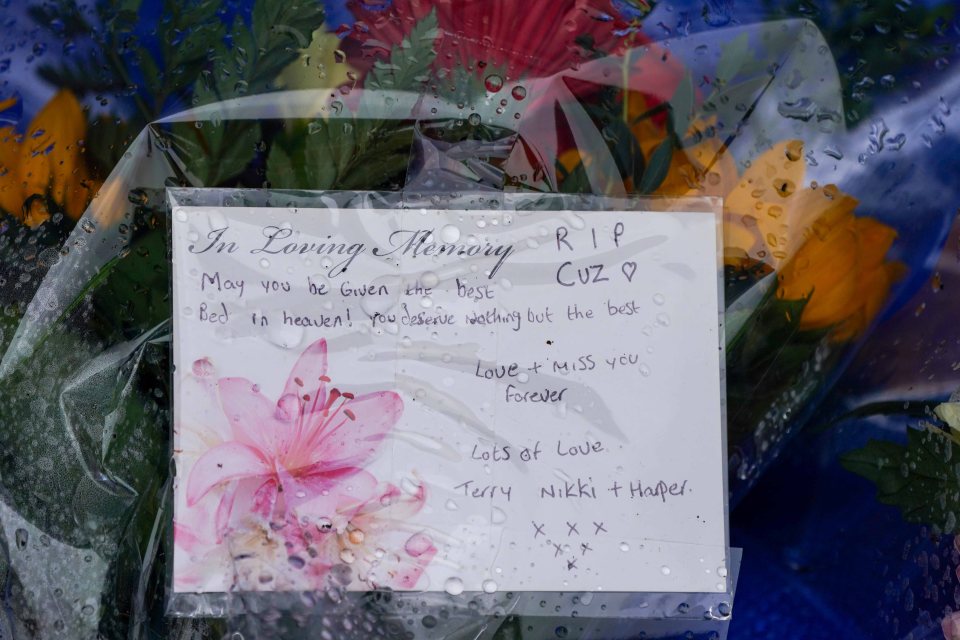 In Loving Memory
R I P
CUZ ♡
May you be Given the best
Bed in heaven! You deserve nothing but the best
Love + Miss you
Forever
Lots of Love
Terry Nikki + Harper.
x x x
x x
x